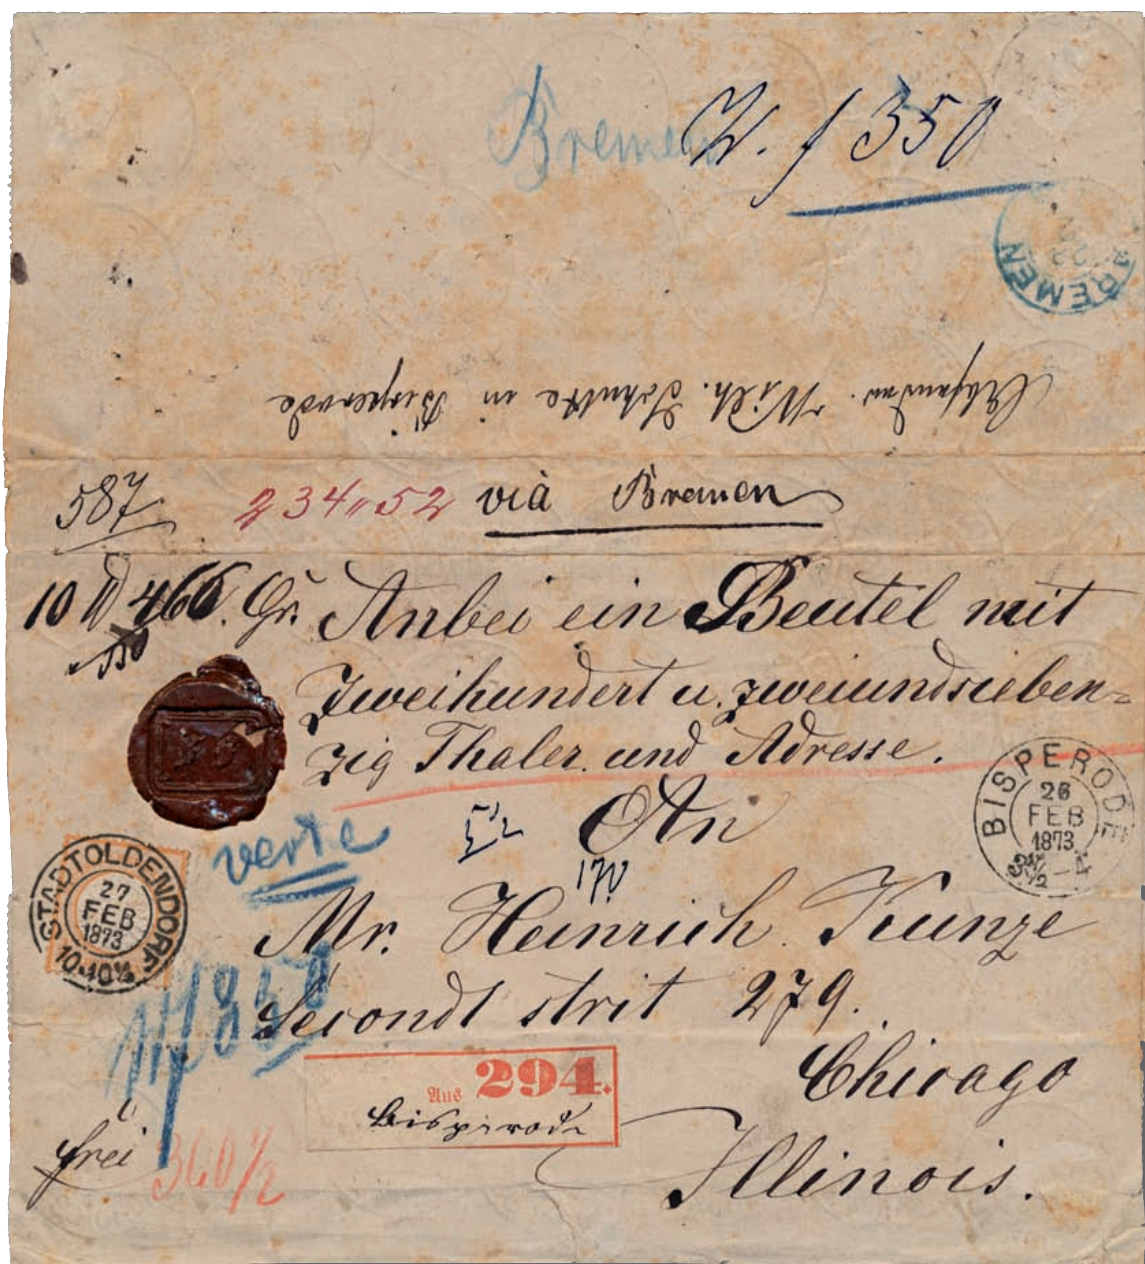 Bremen
W. f 350
BREMEN
Absender. Wilh. Schulke in Bisperode
587
234„52 vià Bremen
10 ℔ 466. Gr. Anbei ein Beutel mit
Zweihundert u. zweiundsieben-
zig Thaler und Adresse.
BISPERODE
26
FEB
1873
3½-4
An
verte
STADTOLDENDORF
27
FEB
1873
10-10½
Mr. Heinrich Kunze
Secondt strit 279.
Chicago
Aus 294.
Bisperode
frei
360/2
Illinois.